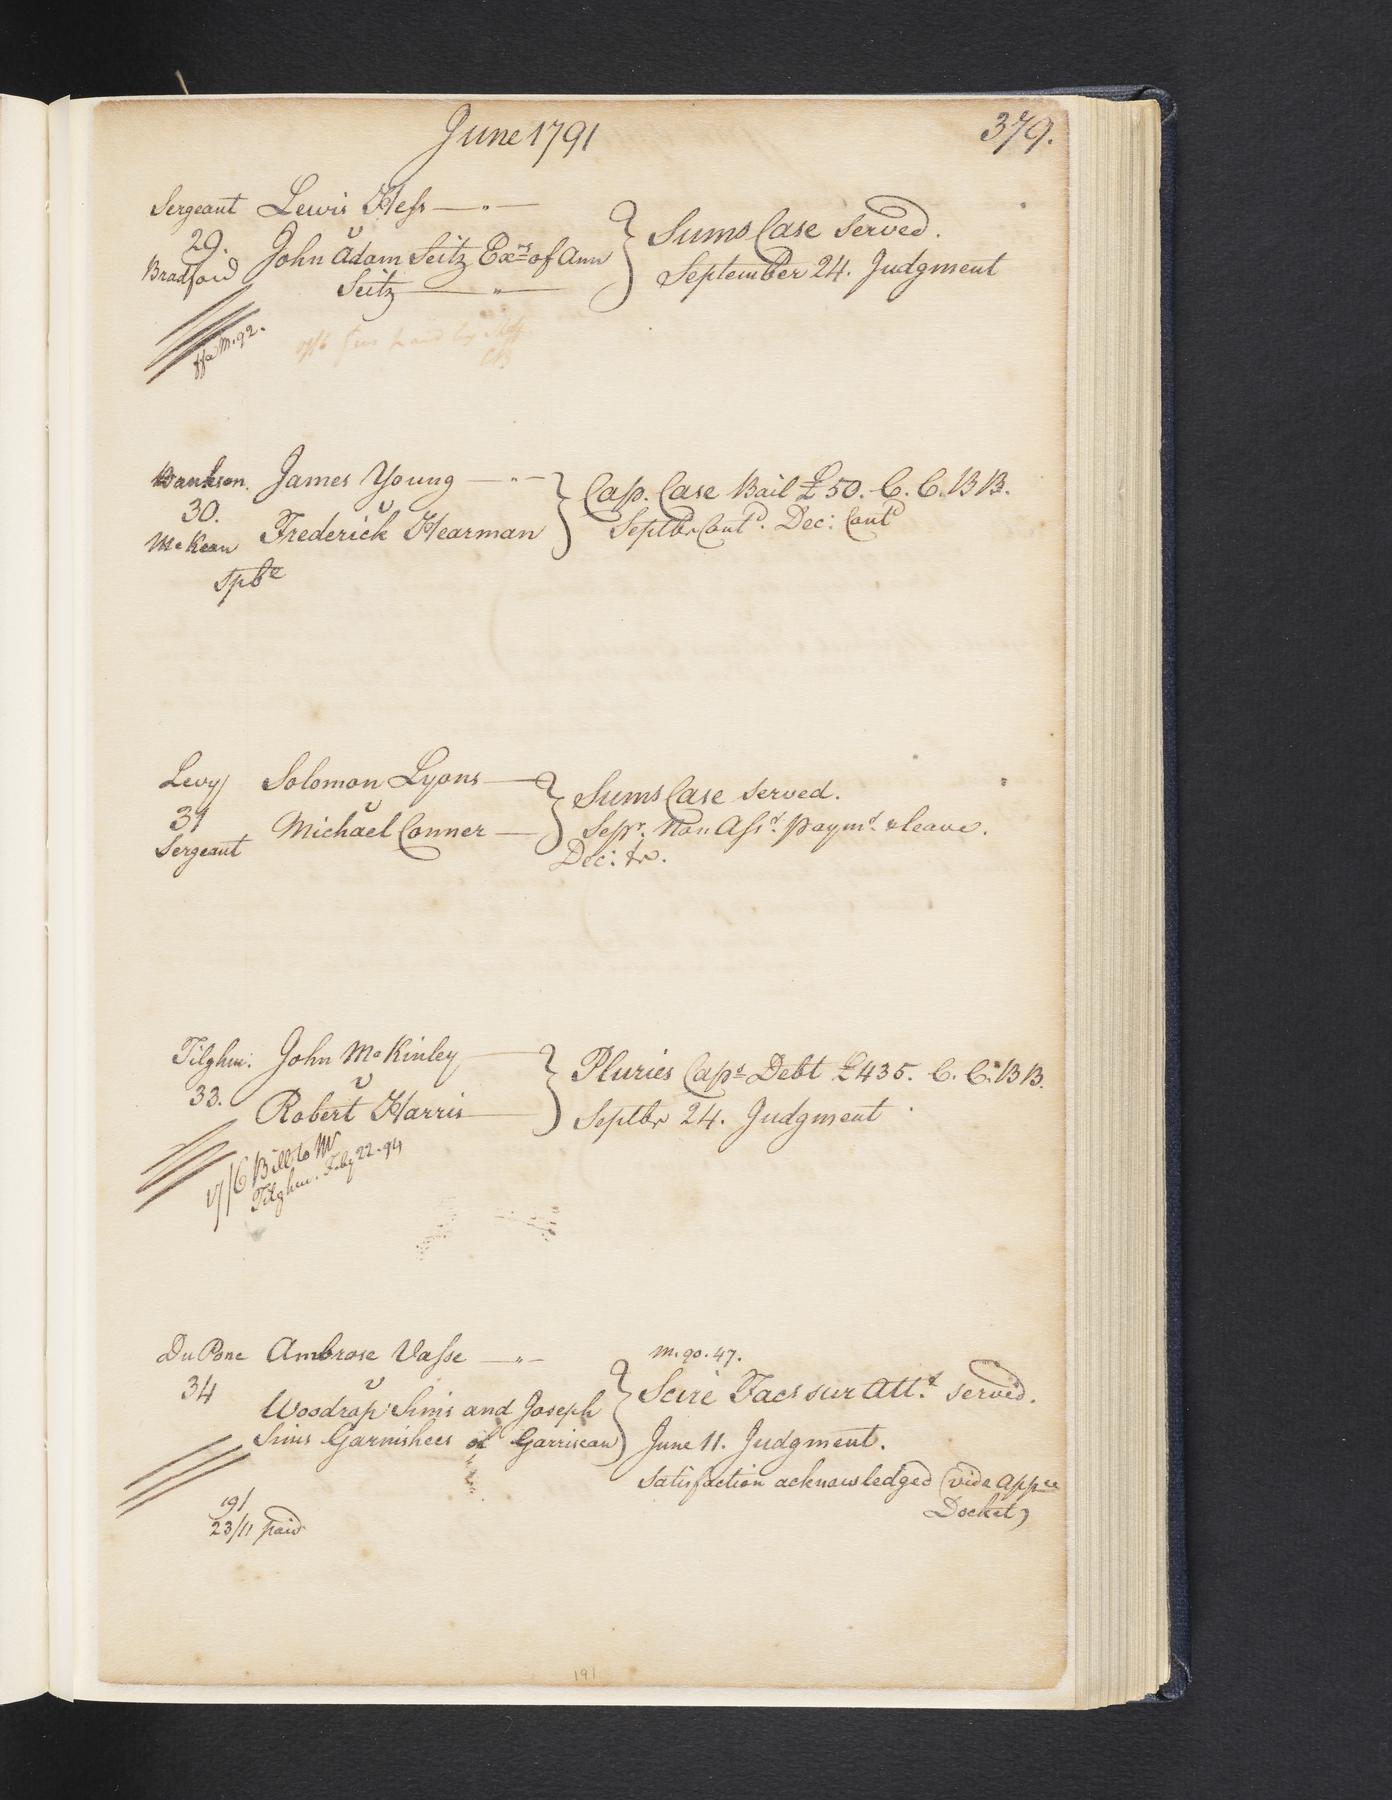 June 1791
379.
Sergeant Lewis Hess
29.
v
Bradford John Adam Seitz Exrs of Ann
Seitz
Sums Case served.
September 24. Judgment
ffa M. 92.
Bankson. James Young
30.
v
McKean Frederick Hearman
Spbe
Cap. Case Bail £50. C. C. B B.
Septbr Contd. Dec: Contd
Levy Solomon Lyons
31
v
Sergeant Michael Conner
Sums Case served.
Sepr. Non Asst. paymt. & leave.
Dec:
Tilghm: John McKinley
33.
v
Robert Harris
Pluries Caps Debt £435. C. C. B B.
Septbr 24. Judgment
17/6 Bill to W
Tilghm. Feby 22. 94
DuPonc Ambrose Vasse
34
v
Woodrop Sims and Joseph
Sims Garnishees of Garriscan
M. 90. 47.
Scire Facs sur Attt. served.
June 11. Judgment.
Satisfaction acknowledged (vide Appce
Docket)
19/
23/11 paid
191